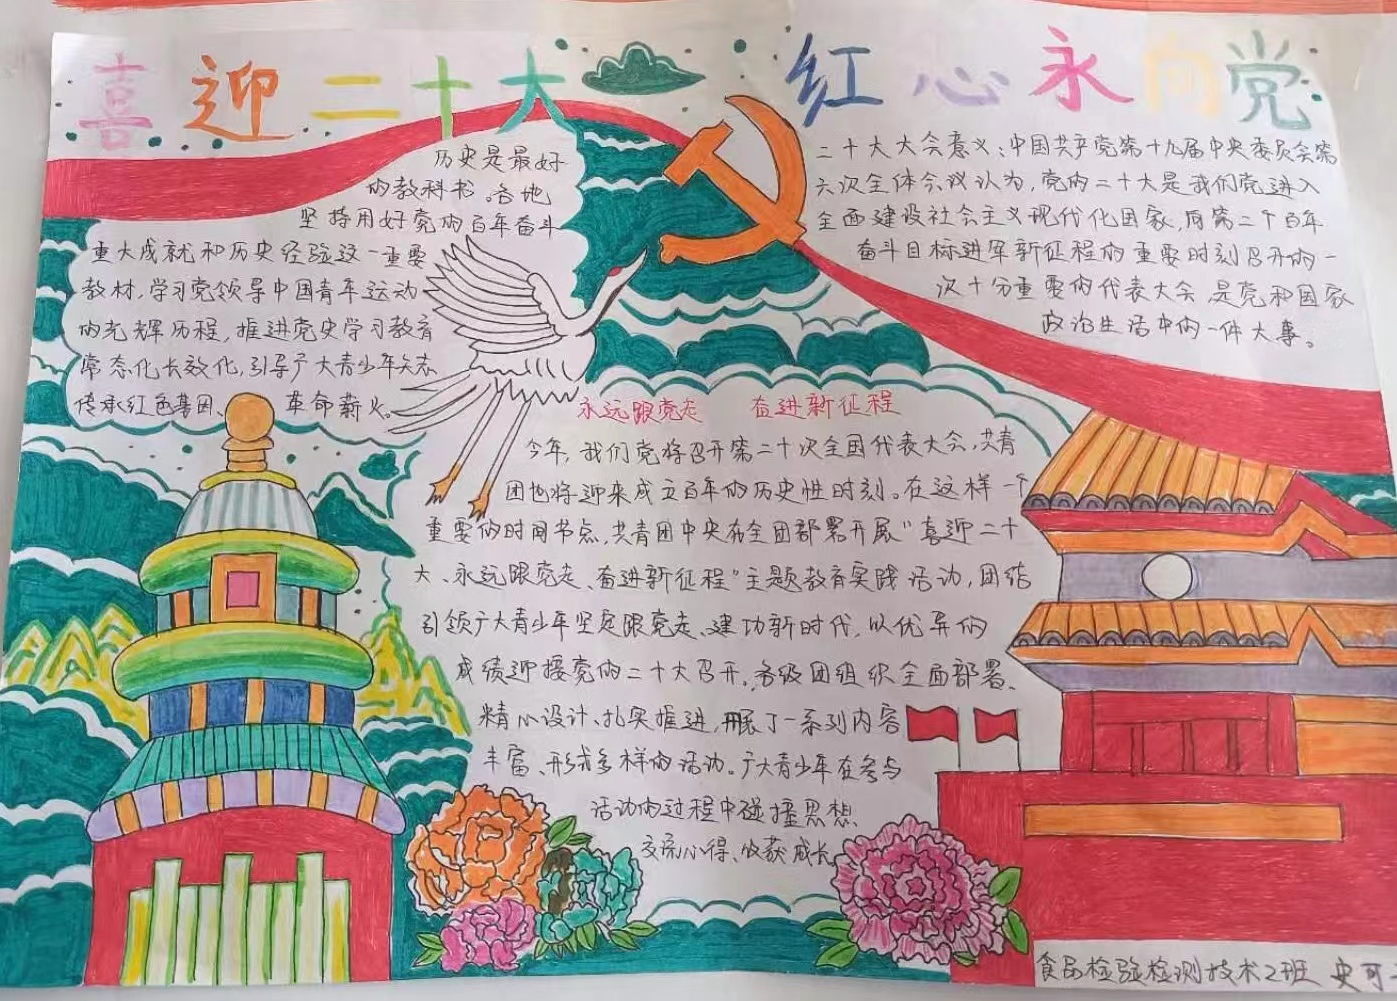 喜迎二十大 红心永向党
历史是最好
的教科书。各地
坚持用好党的百年奋斗
重大成就和历史经验这一重要
教材,学习党领导中国青年运动
的光辉历程,推进党史学习教育
常态化长效化,引导广大青少年矢志
传承红色基因、革命薪火。
二十大大会意义:中国共产党第十九届中央委员会第
六次全体会议认为,党的二十大是我们党进入
全面建设社会主义现代化国家,向第二个百年
奋斗目标进军新征程的重要时刻召开的一
次十分重要的代表大会,是党和国家
政治生活中的一件大事。
永远跟党走 奋进新征程
今年,我们党将召开第二十次全国代表大会,共青
团也将迎来成立百年的历史性时刻。在这样一个
重要的时间节点,共青团中央在全团部署开展“喜迎二十
大、永远跟党走、奋进新征程”主题教育实践活动,团结
引领广大青少年坚定跟党走、建功新时代,以优异的
成绩迎接党的二十大召开。各级团组织全面部署、
精心设计、扎实推进,开展了一系列内容
丰富、形式多样的活动。广大青少年在参与
活动的过程中碰撞思想、
交流心得、收获成长
食品检验检测技术2班 史可